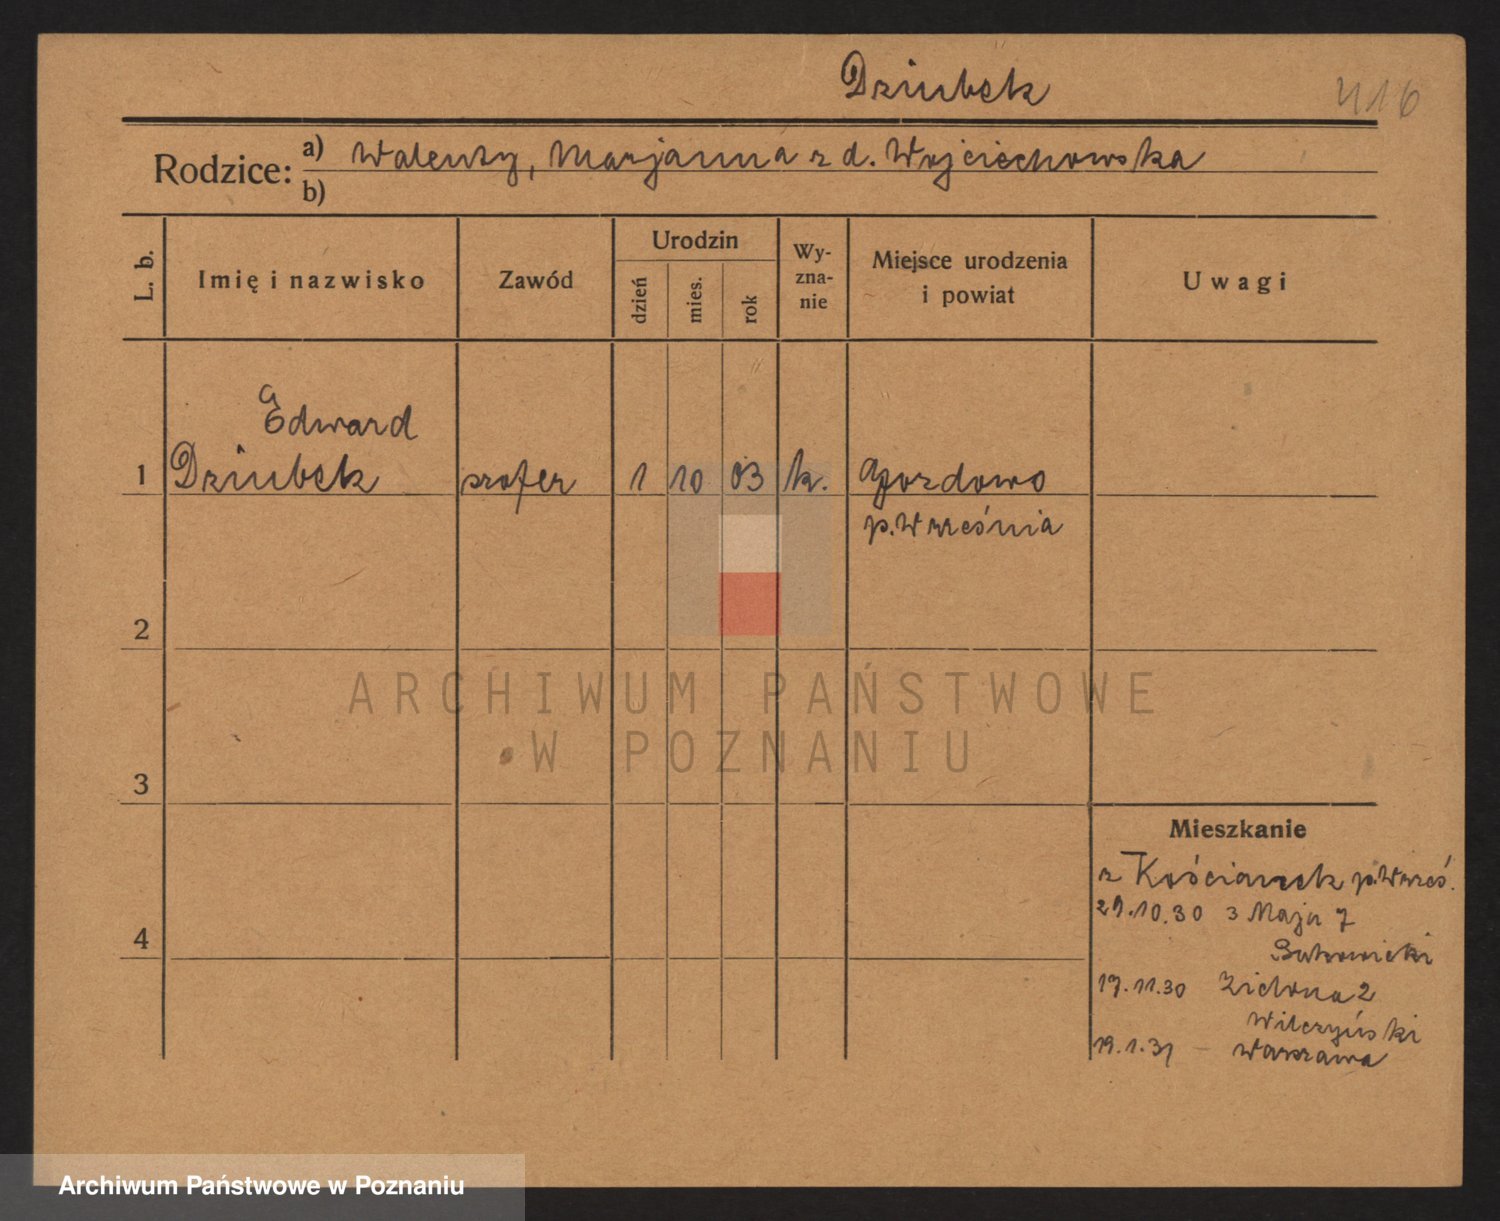 Dziubek
416
Rodzice: a) Walenty, Marjanna z d. Wojciechowska
b)
L. b.
Imię i nazwisko
Zawód
Urodzin
dzień
mies.
rok
Wy-
zna-
nie
Miejsce urodzenia
i powiat
Uwagi
Edward
1 Dziubek szofer 1 10 03 k. Gozdowo
p. Września
2
3
4
ARCHIWUM PAŃSTWOWE
W POZNANIU
Mieszkanie
z Kościanek p. Wrześ.
29.10.30 3 Maja 7
17.11.30 Zielona 2
Wilczyński
19.1.31 — Warszawa
Archiwum Państwowe w Poznaniu